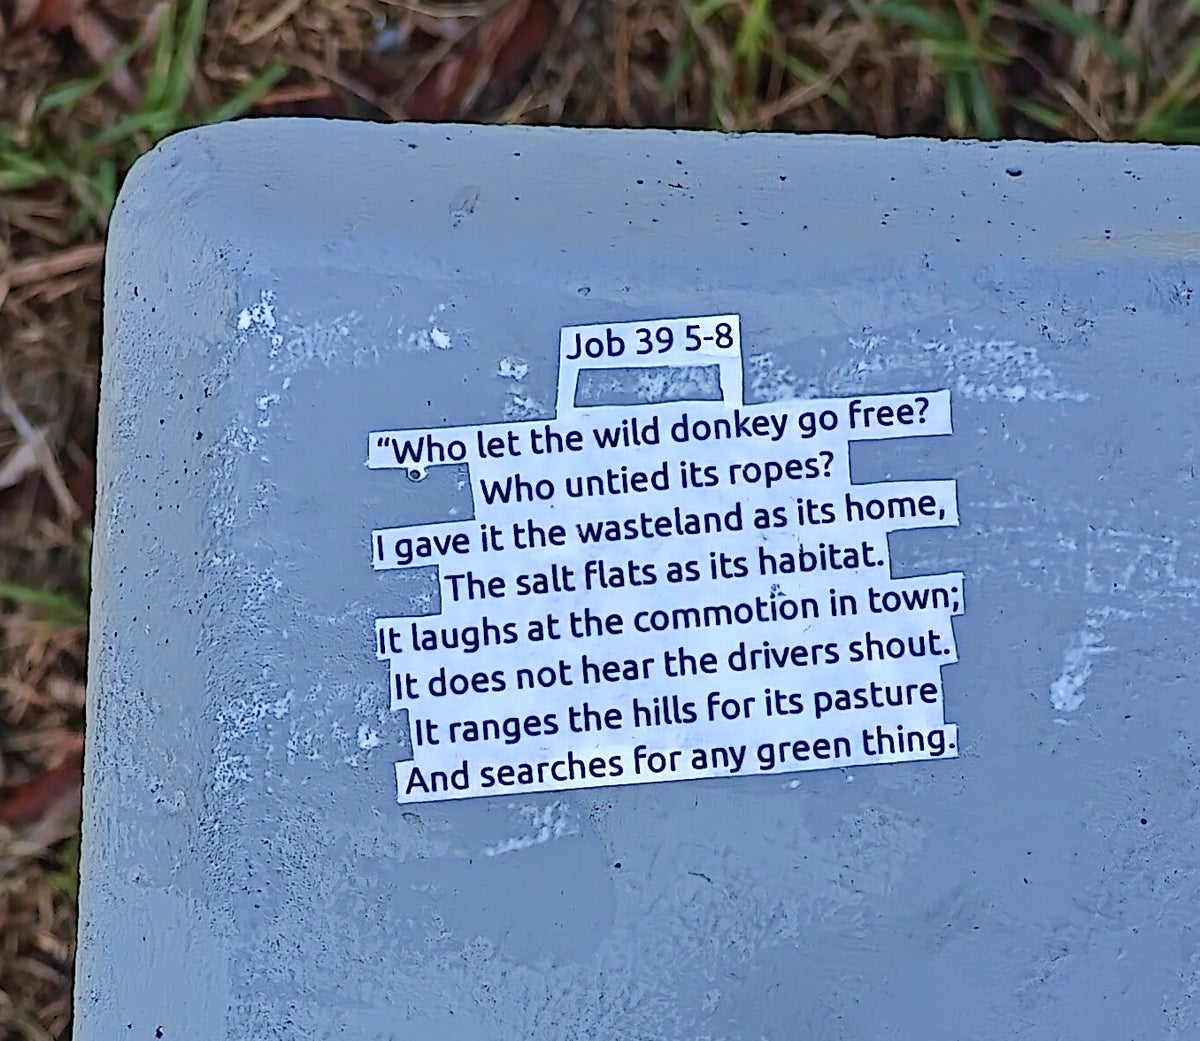 Job 39 5-8
“Who let the wild donkey go free?
Who untied its ropes?
I gave it the wasteland as its home,
The salt flats as its habitat.
It laughs at the commotion in town;
It does not hear the drivers shout.
It ranges the hills for its pasture
And searches for any green thing.